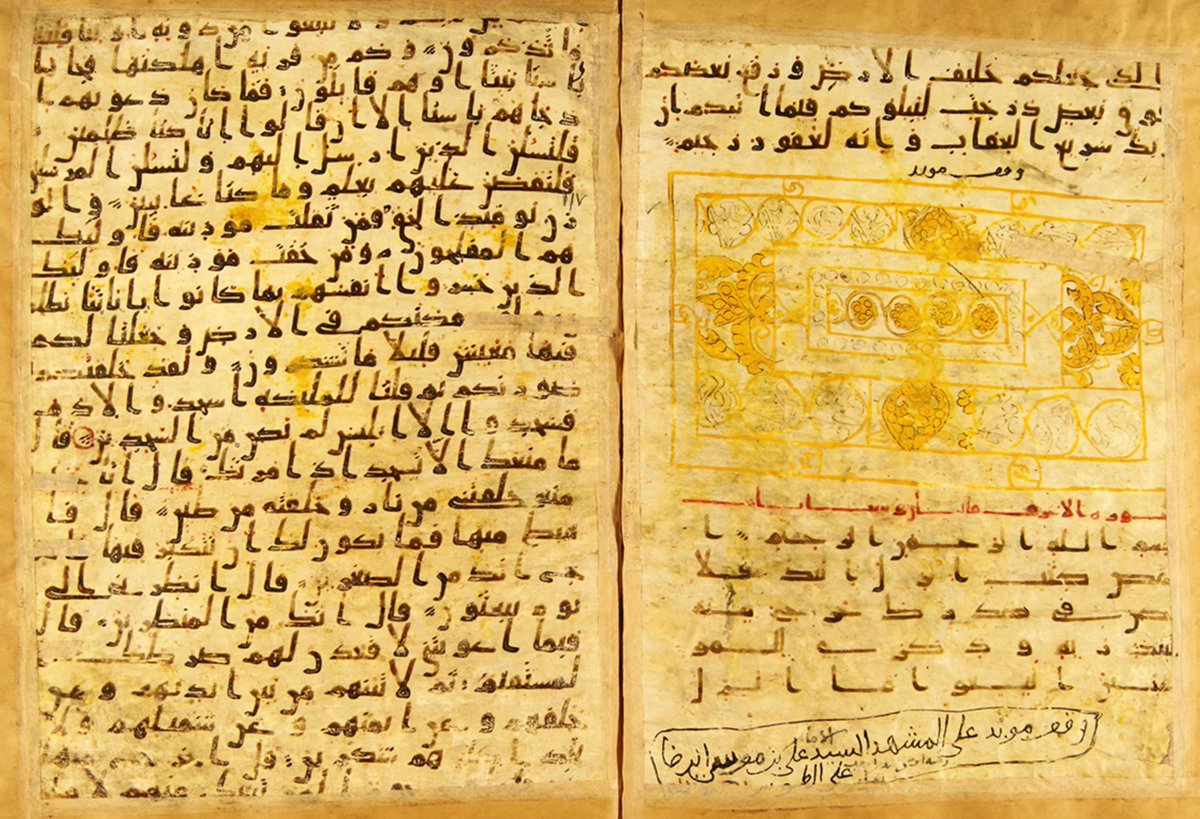 جعلكم خليف الارض ورفع بعضكم
فوق بعض درجت ليبلوكم فيما اتيكم ان
ربك سريع العقاب وانه لغفور رحيم
وقف موبد
سورة الاعراف
بسم الله الرحمن الرحيم ا
لمص كتب انزل اليك فلا
يكن في صدرك حرج منه
لتنذر به وذكرى للمو
منين اتبعوا ما انزل
وقف موبد على المشهد السيد علي بن موسى الرضا
تتبعوا من دونه اوليا قليلا
ما تذكرون وكم من قرية اهلكنها فجا
باسنا بيتا او هم قايلون فما كان دعويهم ا
ذ جاهم باسنا الا ان قالوا انا كنا ظلمين
فلنسلن الذين ارسل اليهم ولنسلن المرسلين
فلنقصن عليهم بعلم وما كنا غايبين والو
زن يومئذ الحق فمن ثقلت موزينه فاوليك
هم المفلحون ومن خفت موزينه فاوليك
الذين خسروا انفسهم بما كانوا باياتنا يظلمو
مكنكم في الارض وجعلنا لكم
فيها معيش قليلا ما تشكرون ولقد خلقنكم
صورنكم ثم قلنا للمليكة اسجدوا لادم
فسجدوا الا ابليس لم يكن من السجدين قال
ما منعك الا تسجد اذ امرتك قال انا خير
منه خلقتني من نار وخلقته من طين قال فا
هبط منها فما يكون لك ان تتكبر فيها فا
خرج انك من الصغرين قال انظرني الى
يوم يبعثون قال انك من المنظرين قال
فبما اغويتني لاقعدن لهم صرطك ا
لمستقيم ثم لاتينهم من بين ايديهم ومن
خلفهم وعن ايمنهم وعن شمايلهم ولا
تجد اكثرهم شكرين قال اخرج منها